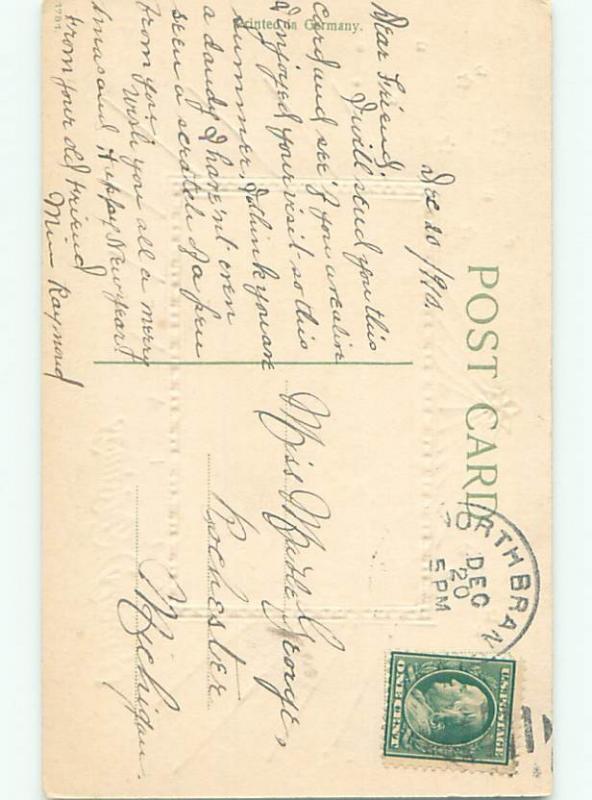 POST CARD
Dec 20/1910.
Dear Friend,
I will send you this
card and see if you are alive
I enjoyed your visit so this
summer, I think you are
a dandy I haven't even
seen a scratch of a pen
from you.
Wish you all a merry
Xmas and Happy New year!
From your old friend
Raymond
Printed in Germany.
Miss
George,
Rochester
Michigan.
NORTH BRAN
DEC
20
5 PM
U.S. POSTAGE
ONE CENT